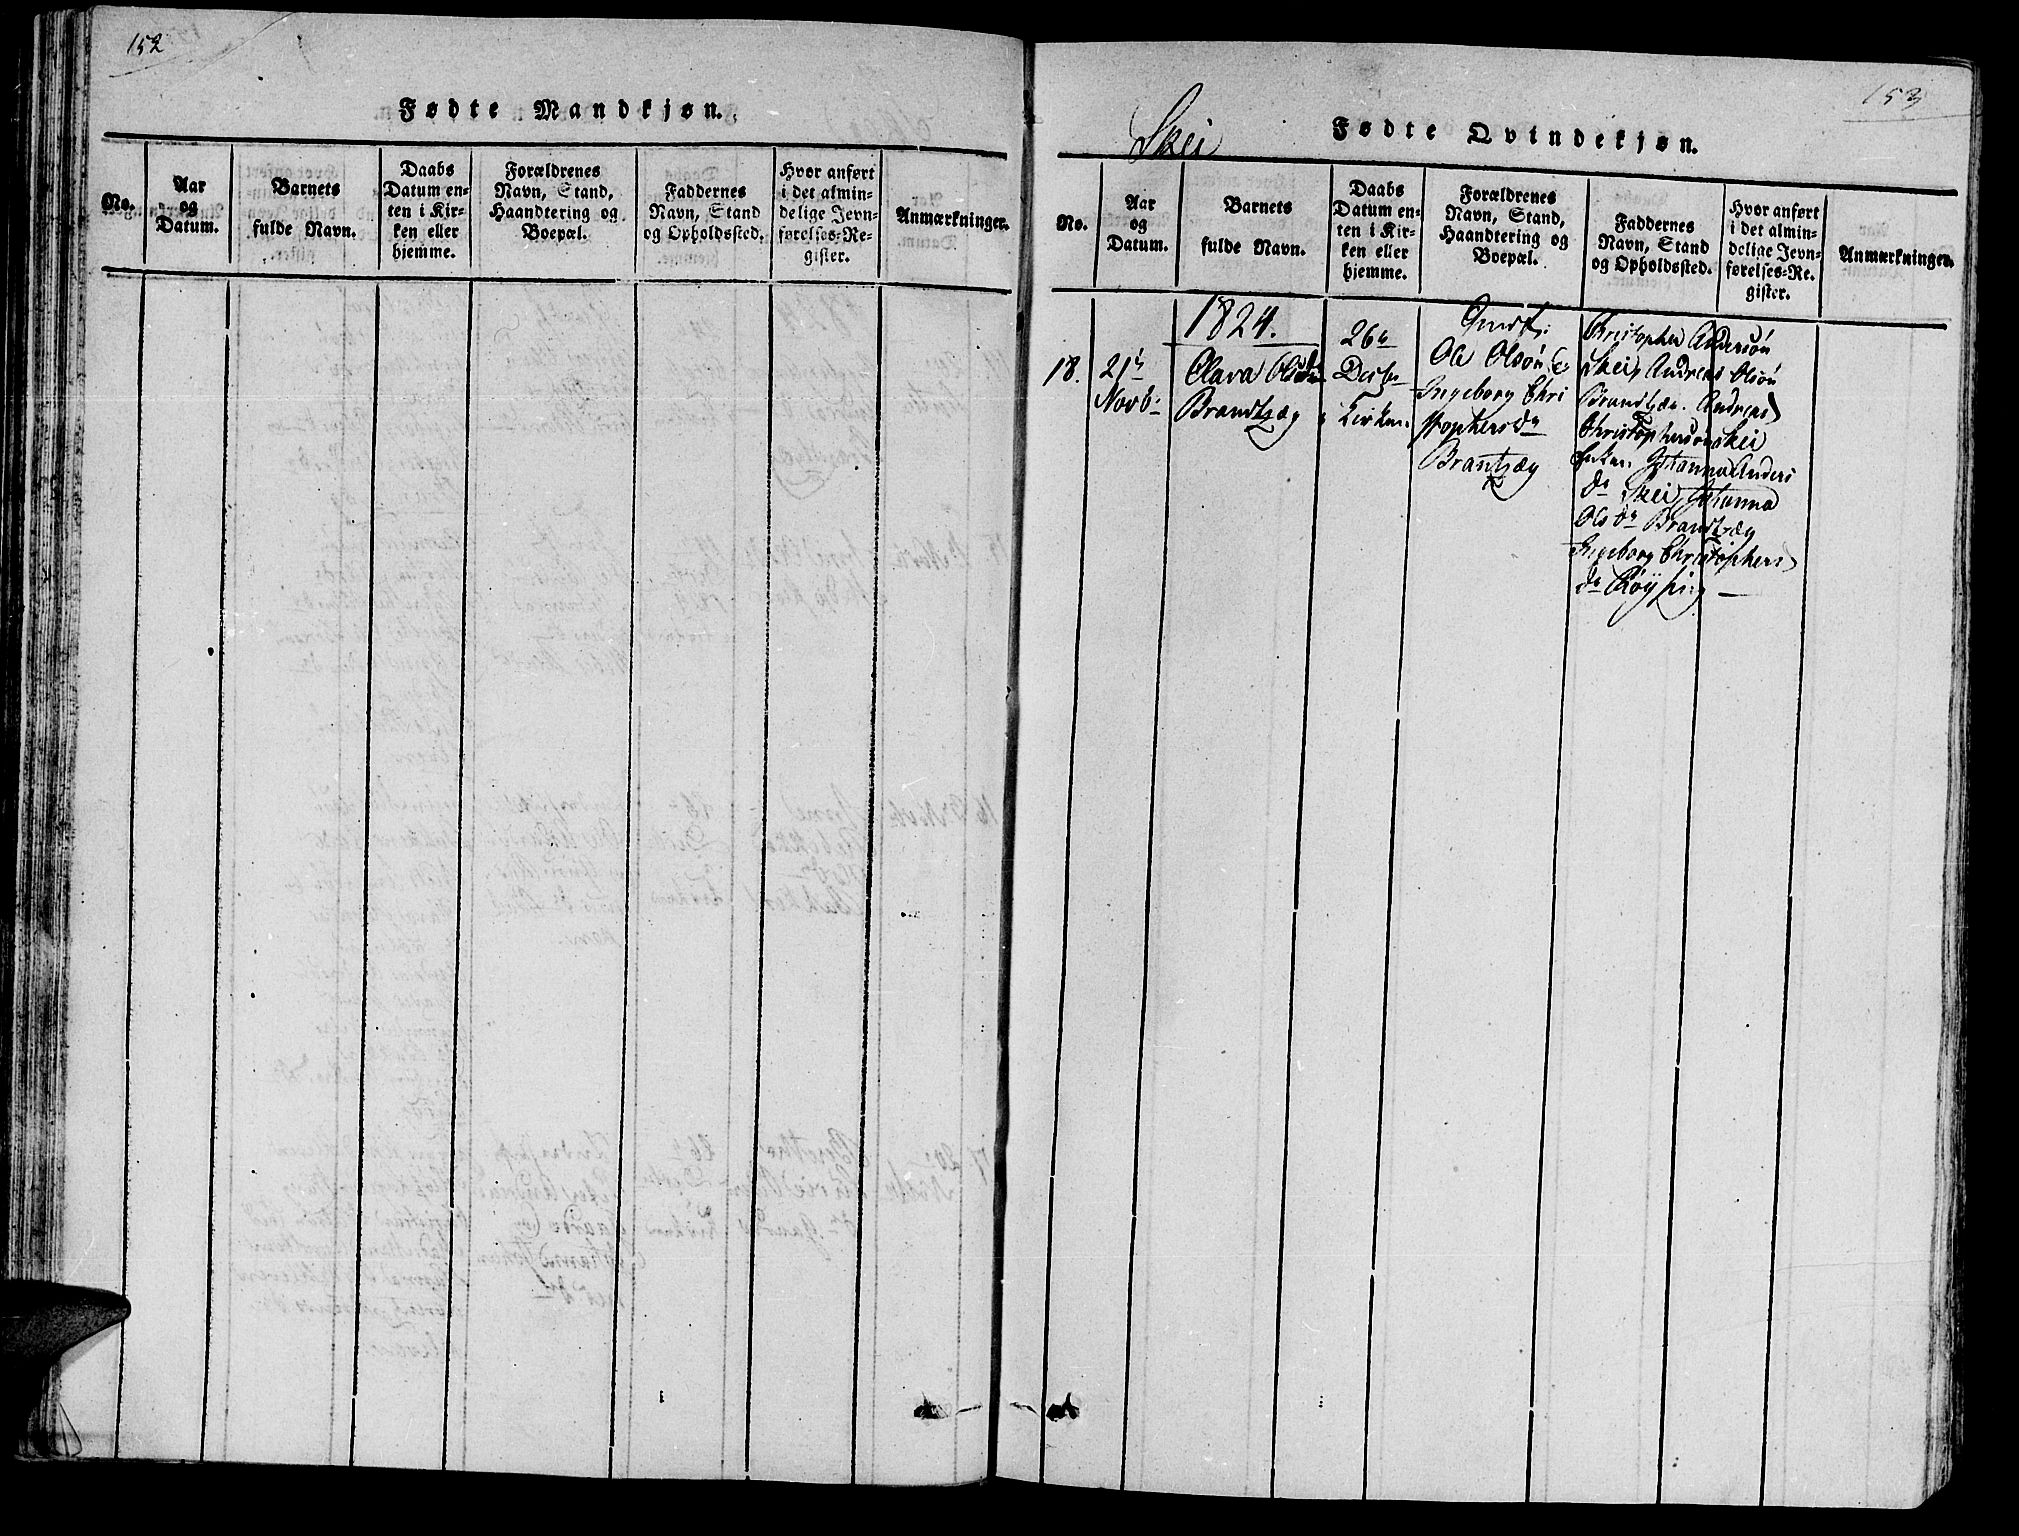 152
Fødte Mandkjøn.
No.
Aar
og
Datum.
Barnets
fulde Navn.
Daabs
Datum en-
ten i Kir-
ken eller
hjemme.
Forældrenes
Navn, Stand,
Haandtering og
Boepæl.
Faddernes
Navn, Stand
og Opholdssted.
Hvor anført
i det almin-
delige Jevn-
førelses-Re-
gister.
Anmærkninger.
153
Skei
Fødte Qvindekjøn.
No.
Aar
og
Datum.
Barnets
fulde Navn.
Daabs
Datum en-
ten i Kir-
ken eller
hjemme.
Forældrenes
Navn, Stand,
Haandtering og
Boepæl.
Faddernes
Navn, Stand
og Opholdssted.
Hvor anført
i det almin-
delige Jevn-
førelses-Re-
gister.
Anmærkninger.
1824.
18.
21
Novb
Clara Olsdr
Brandtzæg
26
Desbr
Kirken
Ole Olsön
Ingeborg Chri
stophersdr
Brantzæg
Christopher Andersön
Skei, Andreas Olsön
Brandtzæg. Andreas
Christopherson Skei
Enken Johanna Anders
dr Skei, Johanna
Olsdr Brandtzæg
Ingeborg Christophers
dr Röysing